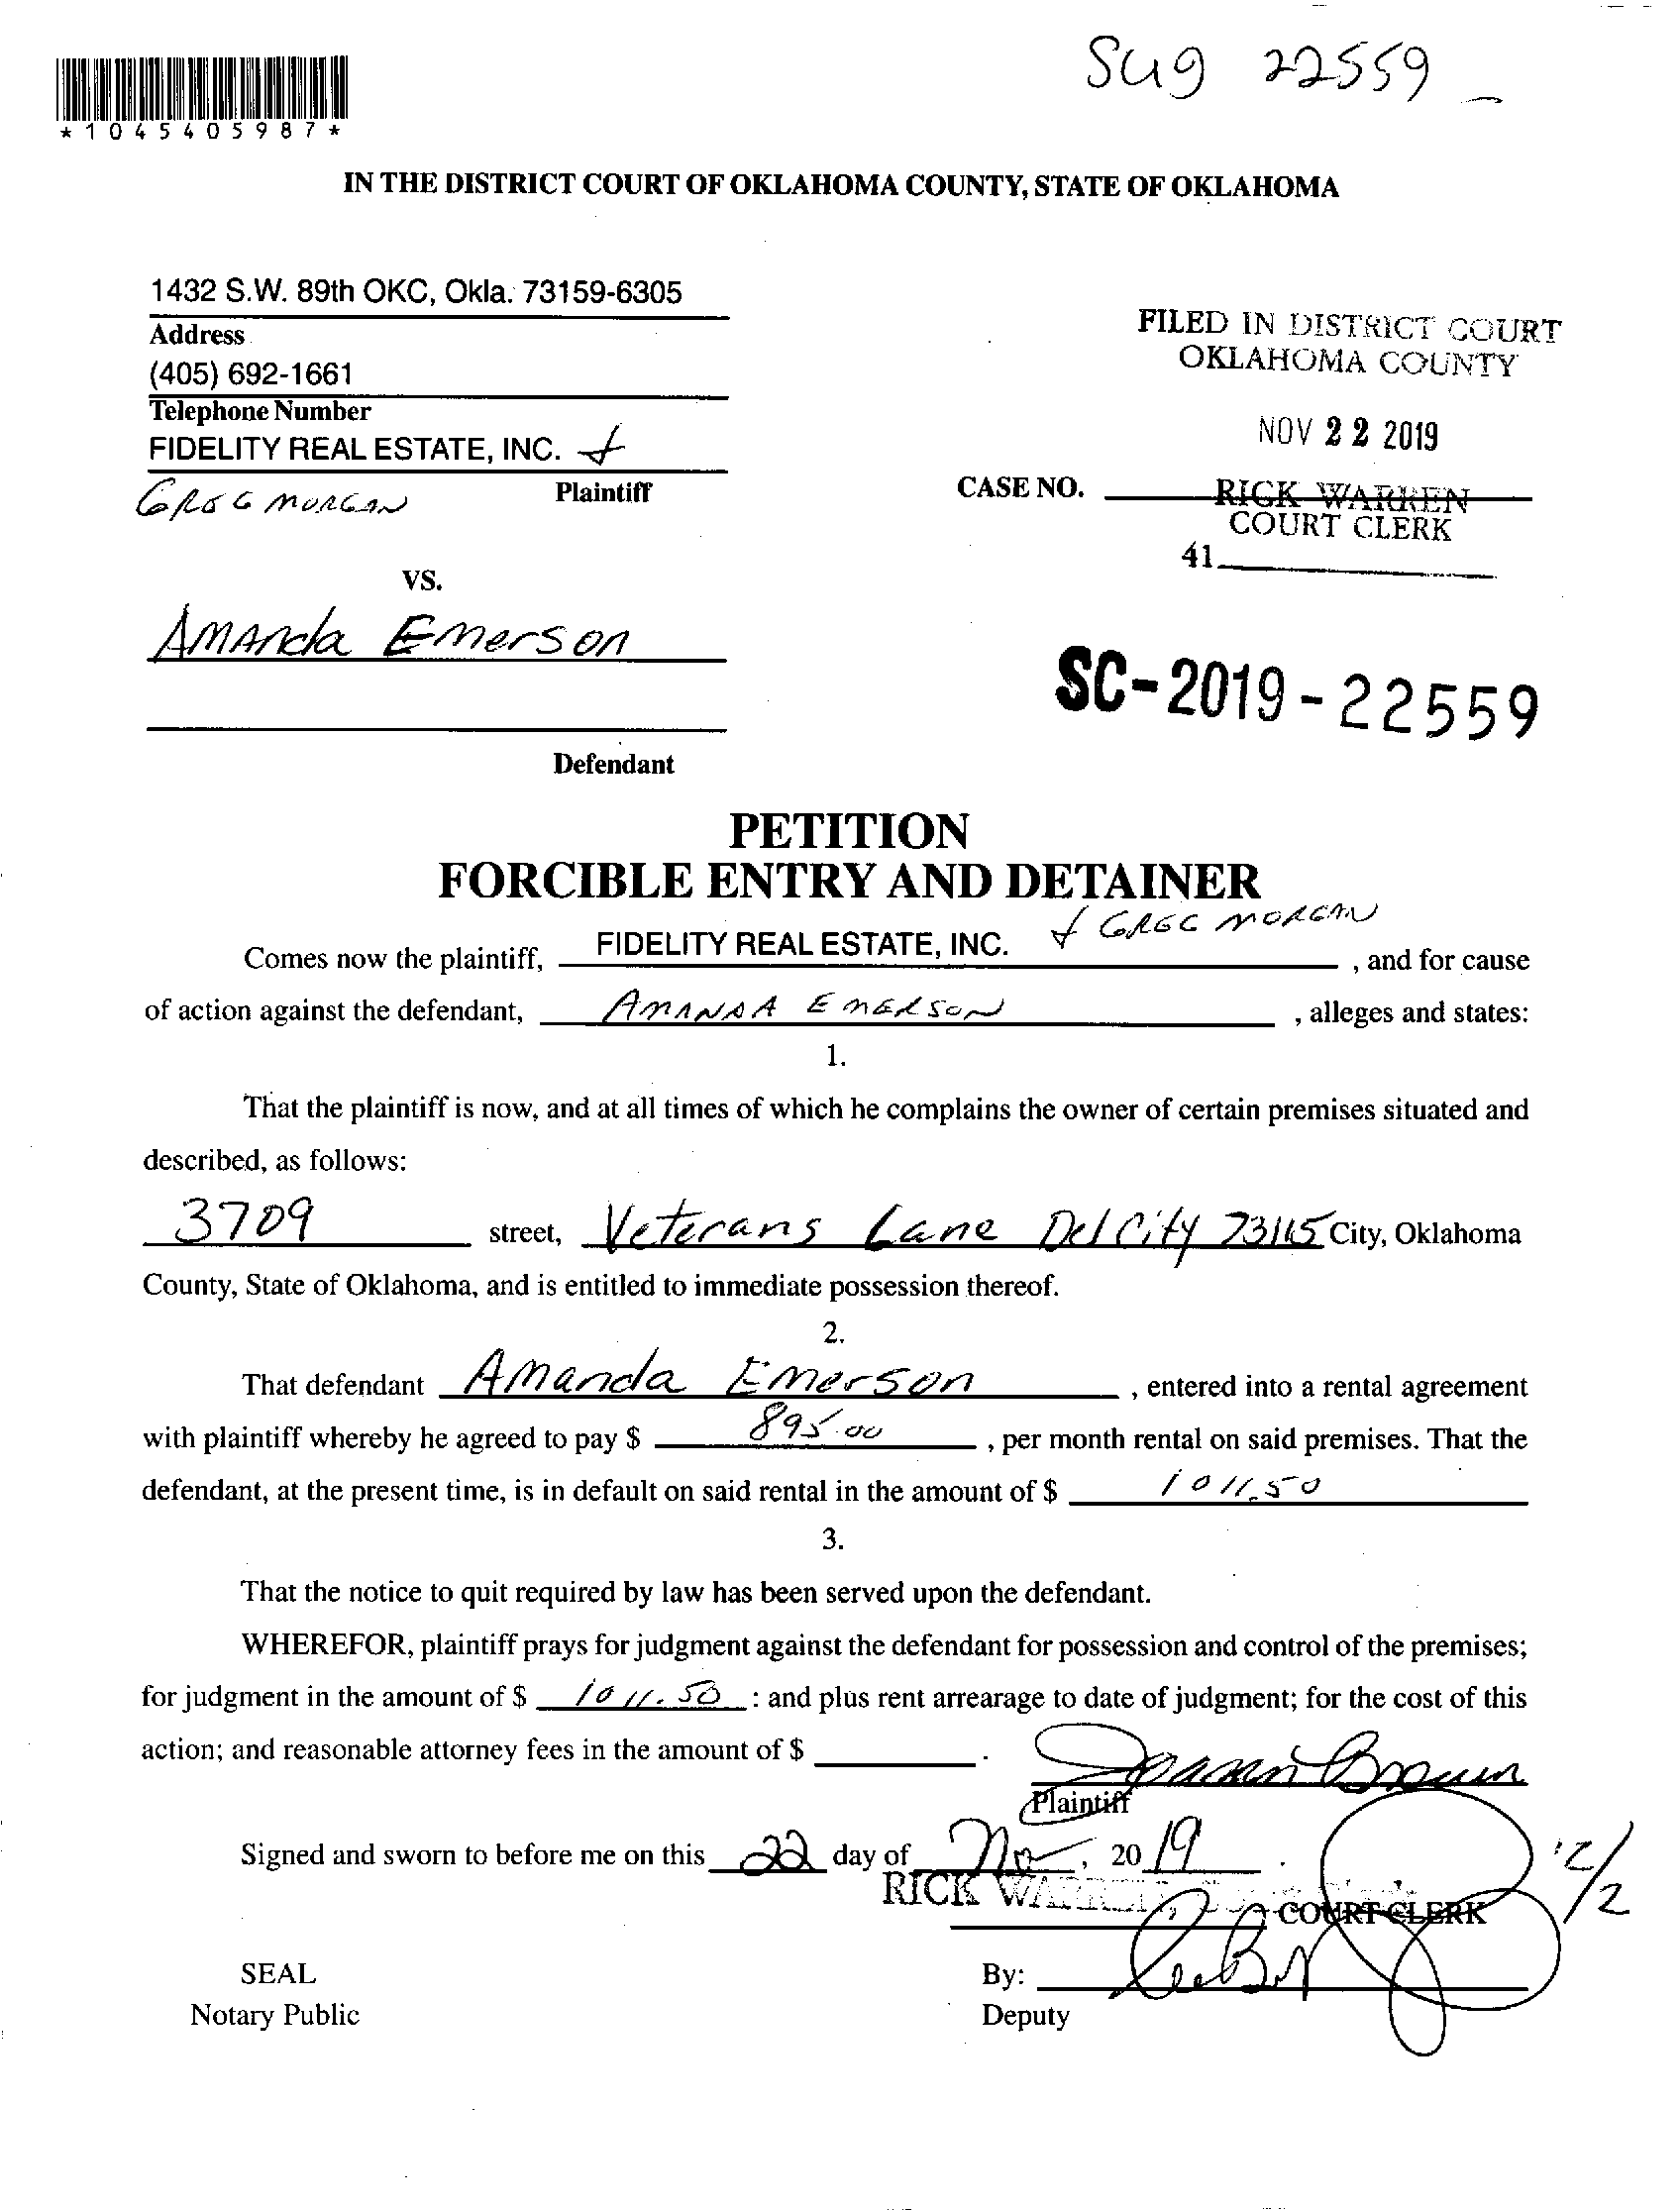 Sug 22559
*1045405987*
IN THE DISTRICT COURT OF OKLAHOMA COUNTY, STATE OF OKLAHOMA
1432 S.W. 89th OKC, Okla. 73159-6305
Address
(405) 692-1661
Telephone Number
FIDELITY REAL ESTATE, INC. +
GREG MORGAN Plaintiff
FILED IN DISTRICT COURT
OKLAHOMA COUNTY
NOV 22 2019
CASE NO. RICK WARREN
COURT CLERK
41
VS.
Amanda Emerson
SC-2019-22559
Defendant
PETITION
FORCIBLE ENTRY AND DETAINER
Comes now the plaintiff, FIDELITY REAL ESTATE, INC. + GREG MORGAN, and for cause
of action against the defendant, AMANDA EMERSON, alleges and states:
1.
That the plaintiff is now, and at all times of which he complains the owner of certain premises situated and
described, as follows:
3709 street, Veterans Lane Del City 73115 City, Oklahoma
County, State of Oklahoma, and is entitled to immediate possession thereof.
2.
That defendant Amanda Emerson, entered into a rental agreement
with plaintiff whereby he agreed to pay $ 895.00, per month rental on said premises. That the
defendant, at the present time, is in default on said rental in the amount of $ 1011.50
3.
That the notice to quit required by law has been served upon the defendant.
WHEREFOR, plaintiff prays for judgment against the defendant for possession and control of the premises;
for judgment in the amount of $ 1011.50 : and plus rent arrearage to date of judgment; for the cost of this
action; and reasonable attorney fees in the amount of $ .
Brown
Plaintiff
Signed and sworn to before me on this 22 day of Nov, 2019.
RICK WARREN, COURT CLERK
SEAL By:
Notary Public Deputy